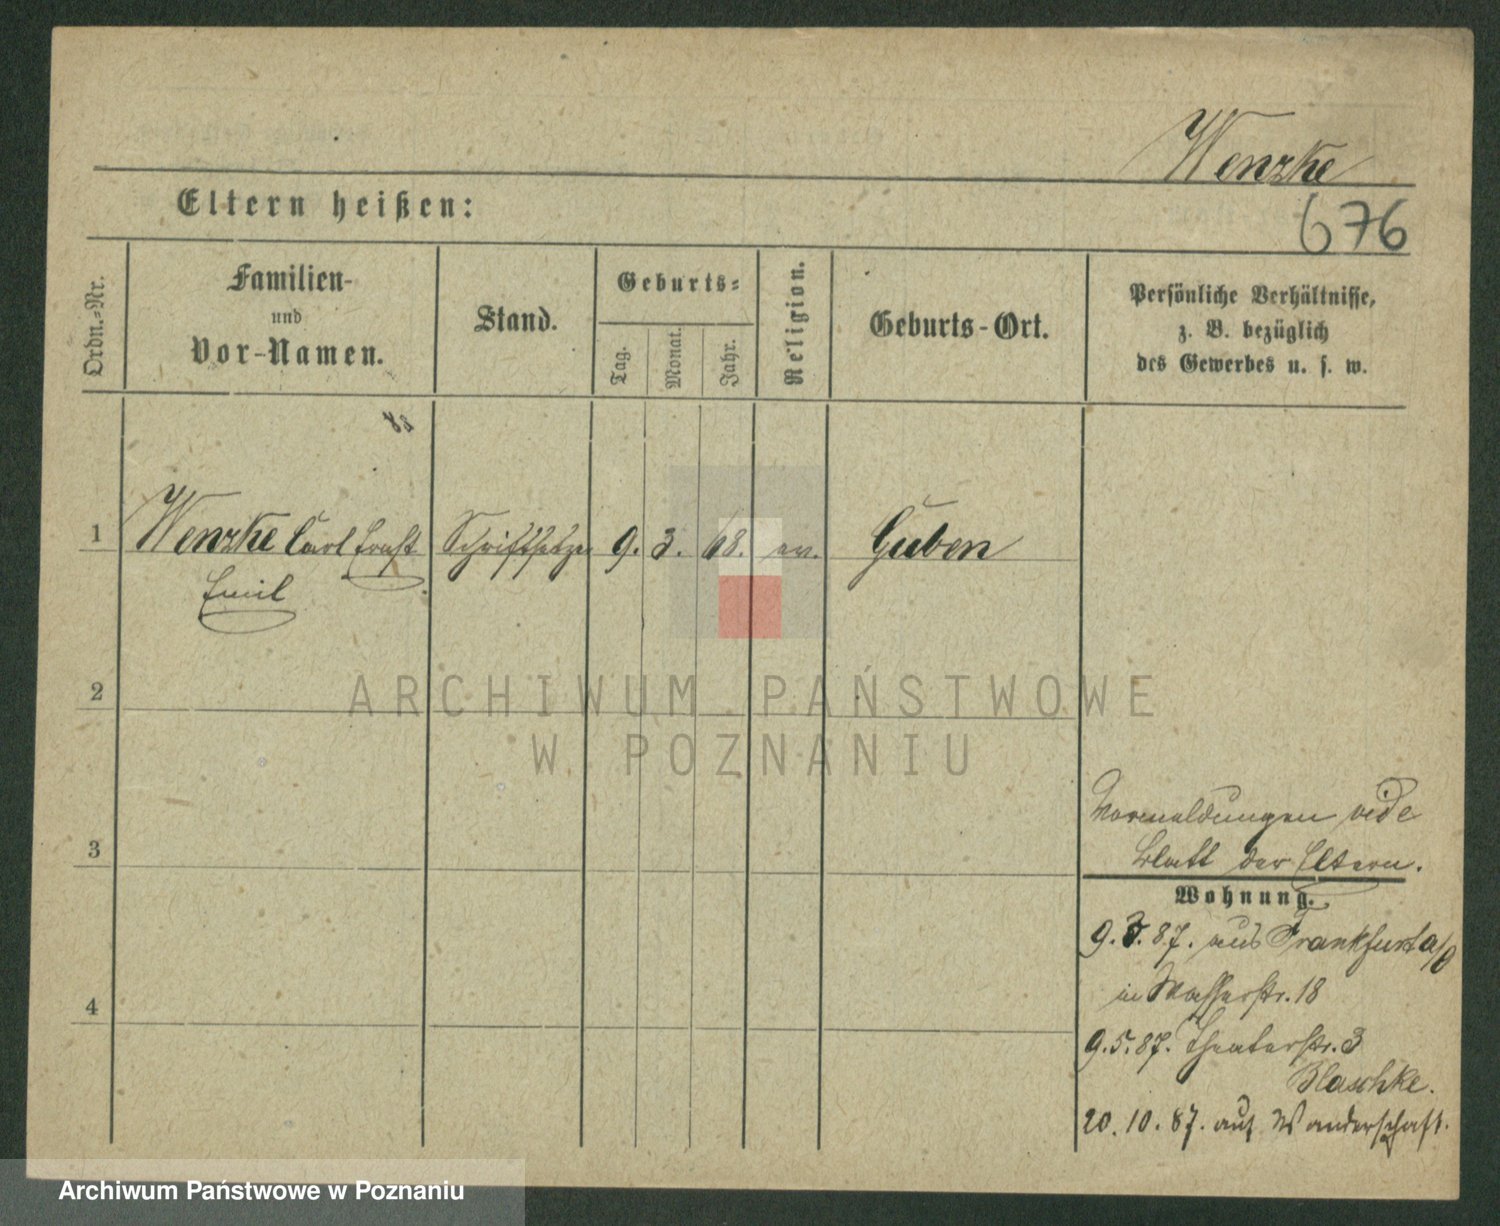 Wenzke
676
Eltern heißen:
Ordn.-Nr.
Familien-
und
Vor-Namen.
Stand.
Geburts-
Tag.
Monat.
Jahr.
Religion.
Geburts-Ort.
Persönliche Verhältnisse,
z. B. bezüglich
des Gewerbes u. s. w.
1 Wenzke Carl Ernst Schriftsetzer 9. 3. 68. ev. Guben
Emil
2
ARCHIWUM PAŃSTWOWE
W POZNANIU
Vormeldungen vide
3
Blatt der Eltern.
Wohnung.
9.3.87. aus Frankfurt a/O
in Wasserstr. 18
4
9.5.87. Theaterstr. 3
Blaschke.
20.10.87. auf Wanderschaft.
Archiwum Państwowe w Poznaniu